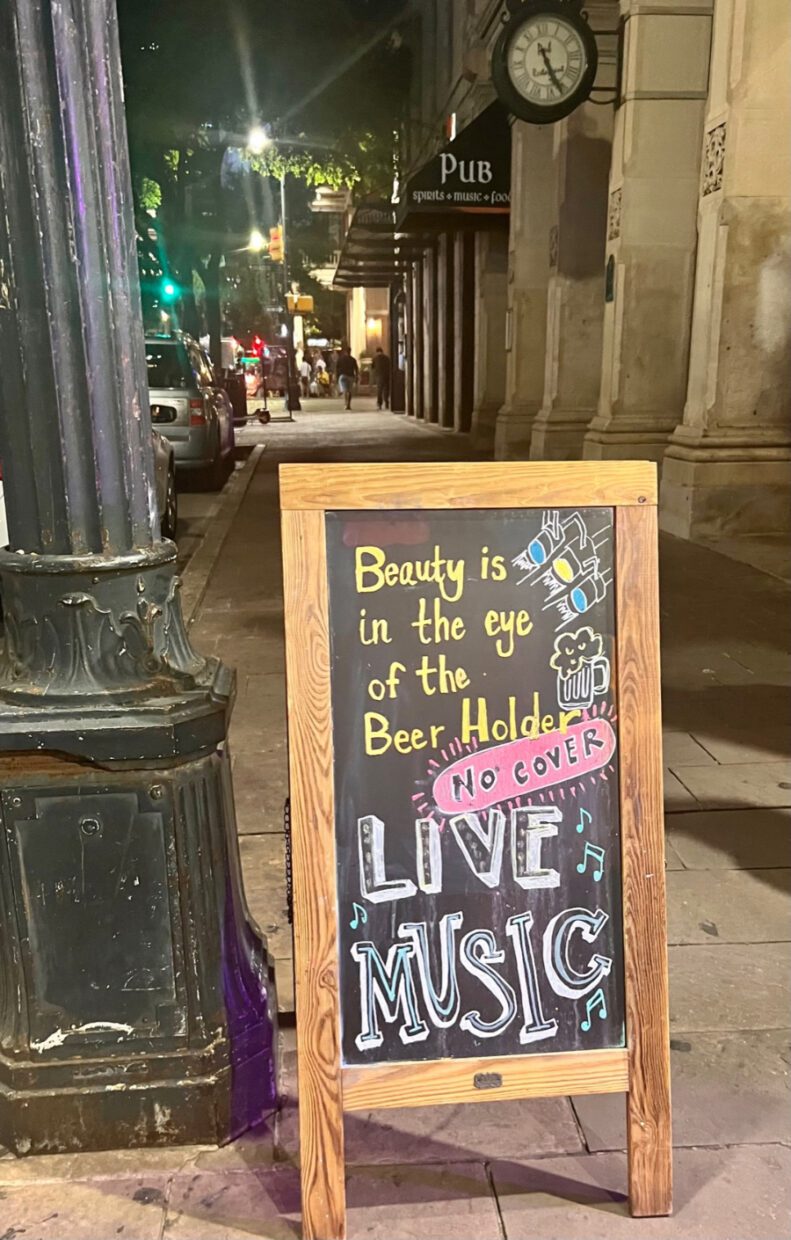 PUB
SPIRITS • MUSIC • FOOD
Beauty is
in the eye
of the
Beer Holder
NO COVER
LIVE
MUSIC